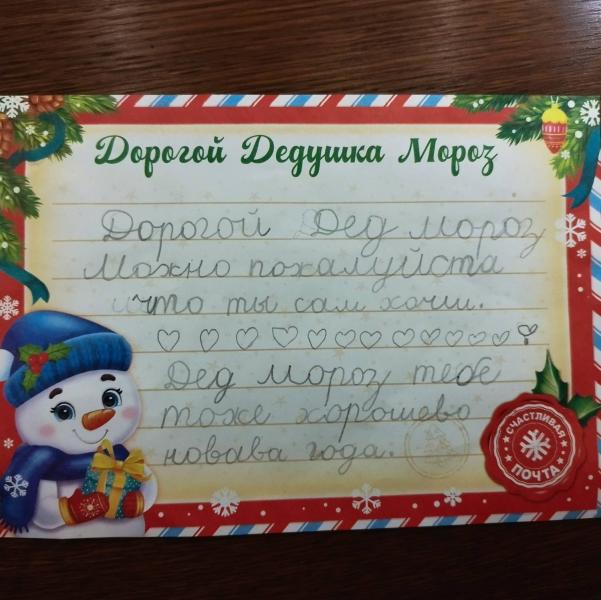 Дорогой Дедушка Мороз
Дорогой Дед мороз
Можно пожалуйста
что ты сам хочиш.
♡ ♡ ♡ ♡ ♡ ♡ ♡ ♡ ♡ ♡ ♡
Дед мороз тебе
тоже хорошево
новава года.
СЧАСТЛИВАЯ
ПОЧТА